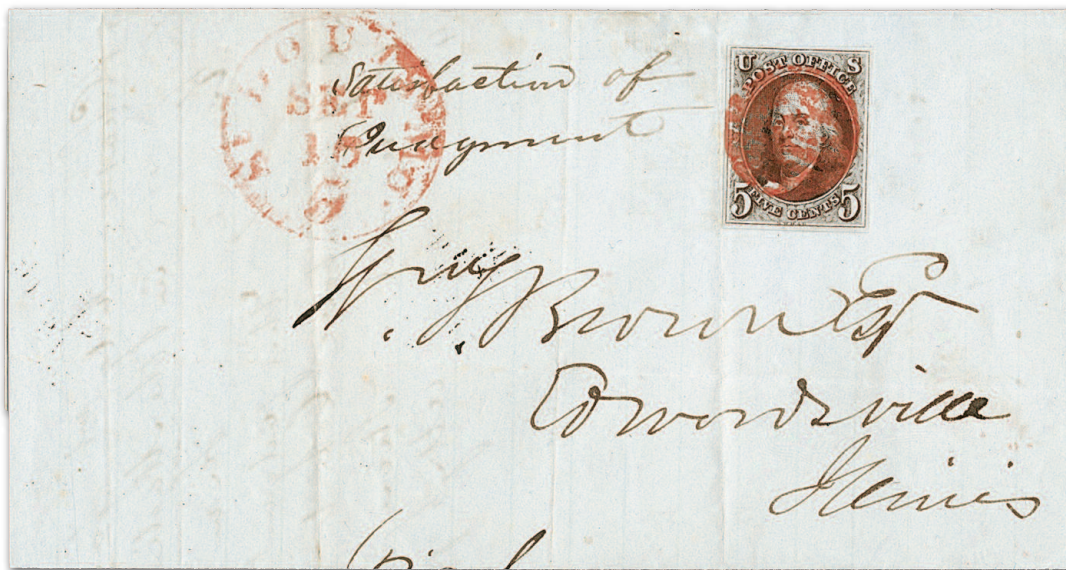 SEP
Satisfaction of
Judgment
U S
POST OFFICE
5 FIVE CENTS 5
Brown Esq
Edwardsville
Illinois